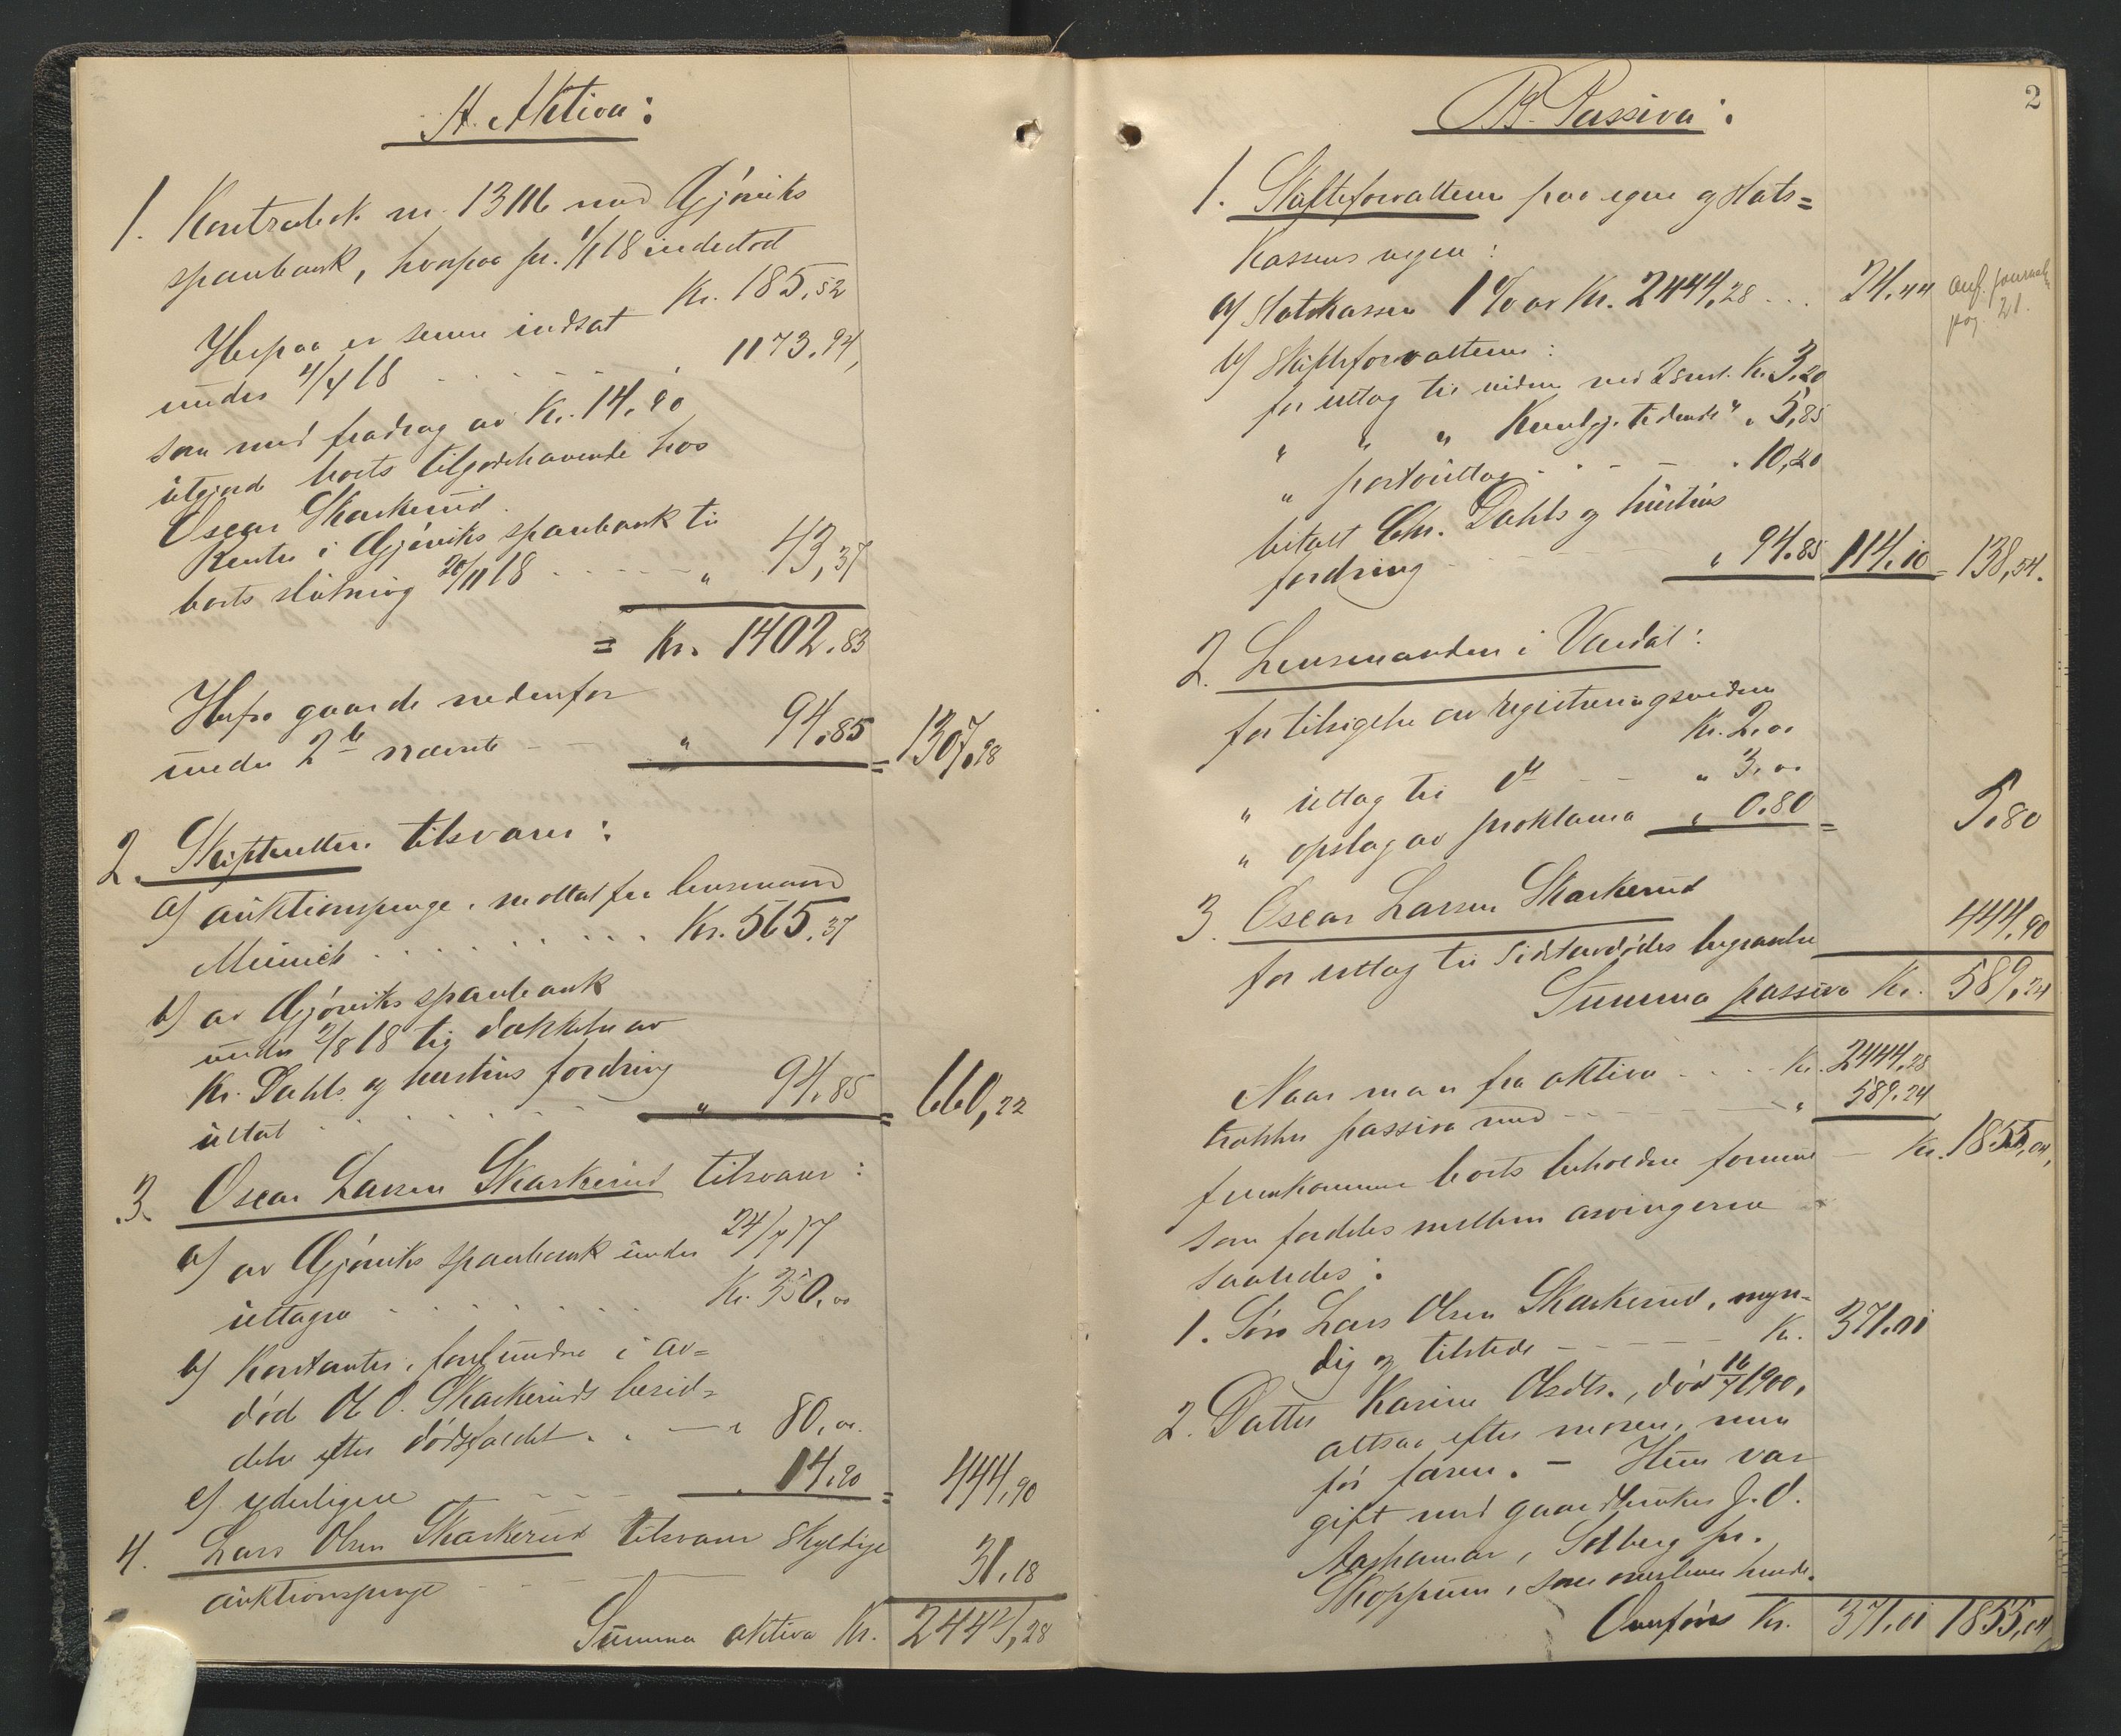 A. Aktiva:
1. Kontrabok nr. 13116 med Gjøviks
sparebank, hvorpaa pr. 1/1 18 indestod
Kr. 185,52
Herpaa er senere indsat
under 4/4 18 . . . . . 1173.94,
som med fradrag av Kr. 14.90
utgjorde boets tilgodehavende hos
Oscar Skarkerud.
Renter i Gjøviks sparebank til
boets slutning 20/11 18 . . . . „ 43,37
= Kr. 1402.83
Herfra gaar de nedenfor
under 2 b nævnte - - - „ 94.85 = 1307.98
2. Skifteretten tilsvarer:
a) auktionspenge, mottat fra lensmand
Münich . . . . . . . . . Kr. 565.37
b) av Gjøviks sparebank
under 2/8 18 til dækkelse av
Kr. Dahls og hustrus fordring
uttat . . . . . . „ 94.85 = 660,22
3. Oscar Larsen Skarkerud tilsvarer:
a) av Gjøviks sparebank under 24/7 17
uttagne . . . . . . . Kr. 350.00
b) Kontanter, forefundne i av=
død O. O. Skarkeruds besid=
delse efter dødsfaldet . . — „ 80,00.
c) yderligere - - - - . 14.90 = 444,90
4. Lars Olsen Skarkerud tilsvarer skyldige
auktionspenge - - - 31,18
Summa aktiva Kr. 2444,28
2
B. Passiva:
1. Skifteforvalteren paa egne og stats=
kassens vegne:
a) Statskassen 1 % av Kr. 2444,28 . . . 24,44 anf. journal
pag. 21.
b) Skifteforvalteren:
for utlæg til vidner ved Kr. 3,20
„ „ „ Kundgj. tidende „ 5,85
„ portoutlæg . . - - . 10,20
betalt Chr. Dahls og hustrus
fordring - - - „ 94.85 114,10 = 138,54.
2. Lensmanden i Vardal:
for tilsigelse av registreringsvidner
Kr. 2.00
„ utlæg til do - - „ 3.00
„ opslag av proklama „ 0.80 = 5.80
3. Oscar Larsen Skarkerud
for utlæg til sidstavdødes begravelse 444,90
Summa passiva Kr. 589,24
Naar man fra aktiva . . . . Kr. 2444,28
trækker passiva med - - - - „ 589.24
fremkommer boets beholdne formue — Kr. 1855,04,
som fordeles mellem arvingerne
saaledes:
1. Søn Lars Olsen Skarkerud, myn=
dig og tilstede - - - - Kr. 371.01
2. Datter Karine Olsdtr., død 16/7 1900,
altsaa efter moren, men
før faren. - Hun var
gift med gaardbruker J. O.
Aashamar, Solberg pr.
Skoppum, som overlever hende.
Overføres Kr. 371.01 1855,04